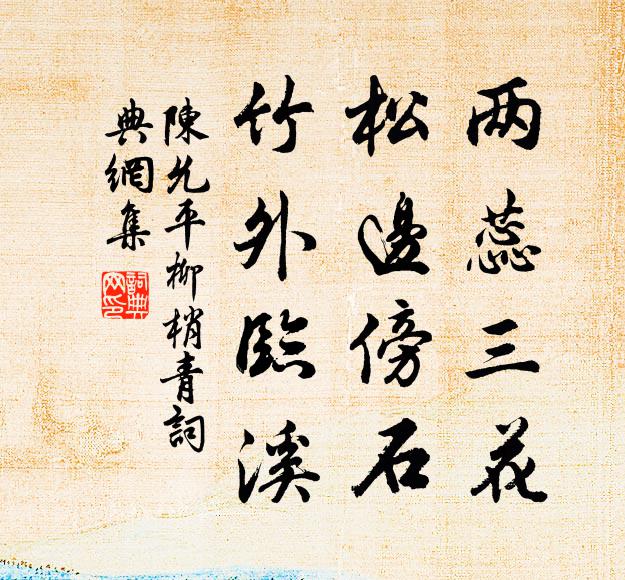 两蕊三花
松邊傍石
竹外臨溪
陳允平柳梢青詞
典網集
詞典網印